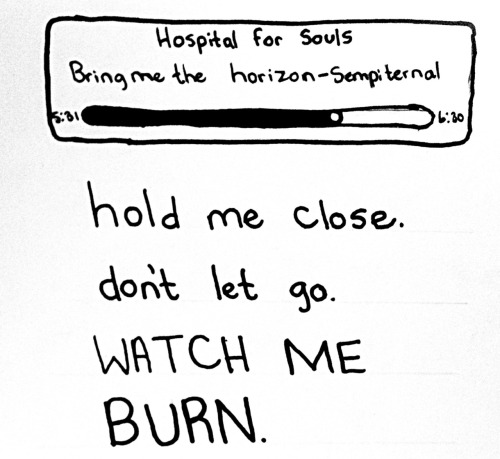 Hospital for Souls
Bring me the horizon-Sempiternal
5:31 6:30
hold me close.
don't let go.
WATCH ME
BURN.